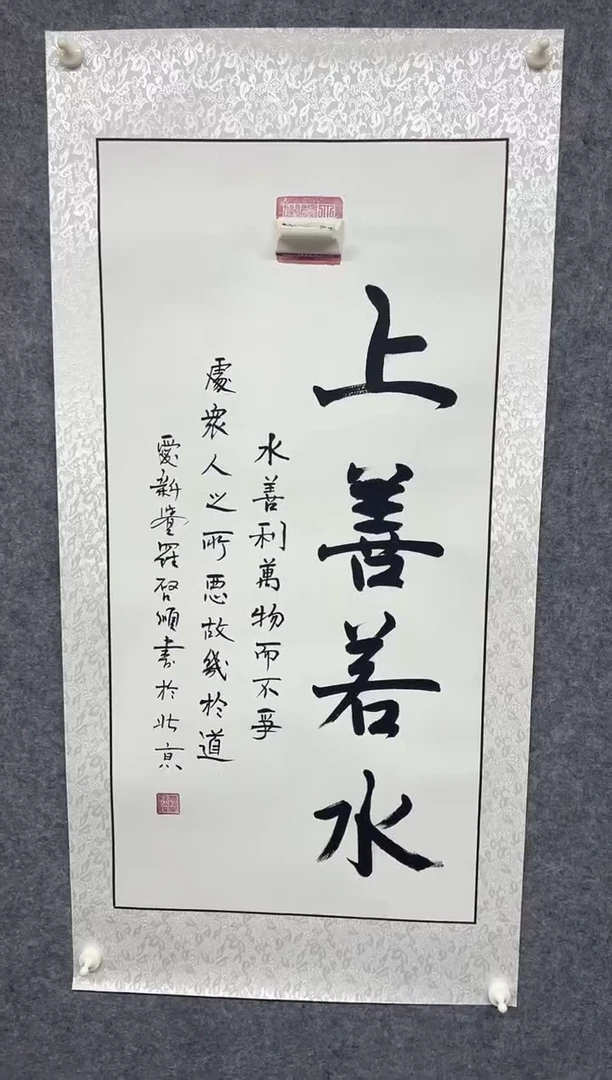 上善若水
水善利萬物而不爭
處衆人之所惡故幾於道
愛新覺羅啓順書於北京